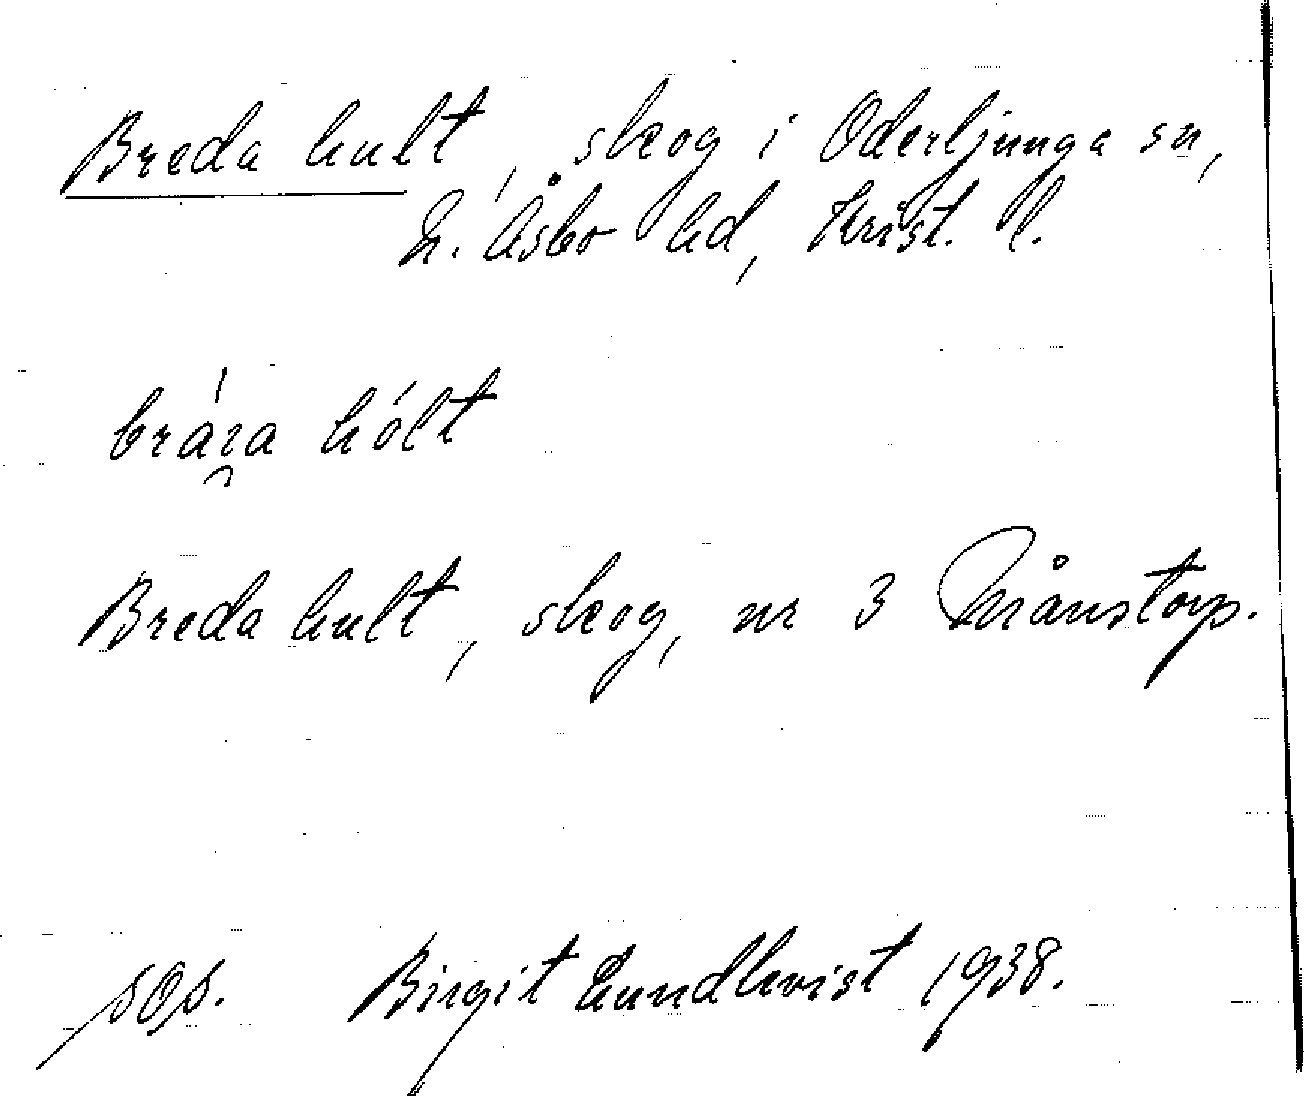 Breda hult, skog i Oderljunga sn,
N. Åsbo hd, Krist. l.
hólt
Breda hult, skog, nr 3 Månstorp.
Birgit Lundkvist 1938.